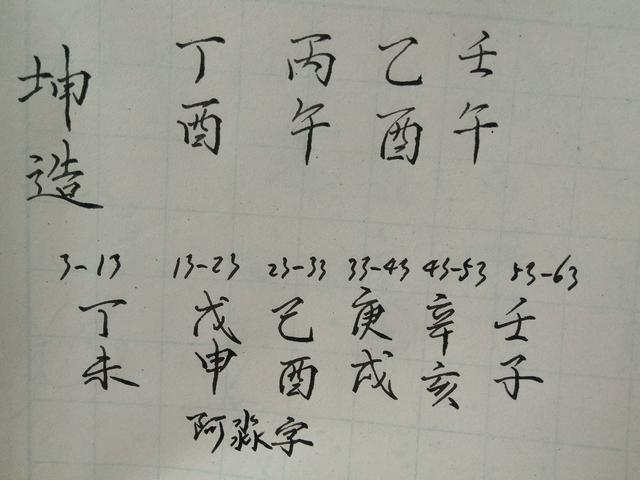 坤造
丁 丙 乙 壬
酉 午 酉 午
3-13 13-23 23-33 33-43 43-53 53-63
丁 戊 己 庚 辛 壬
未 申 酉 戌 亥 子
阿淼字